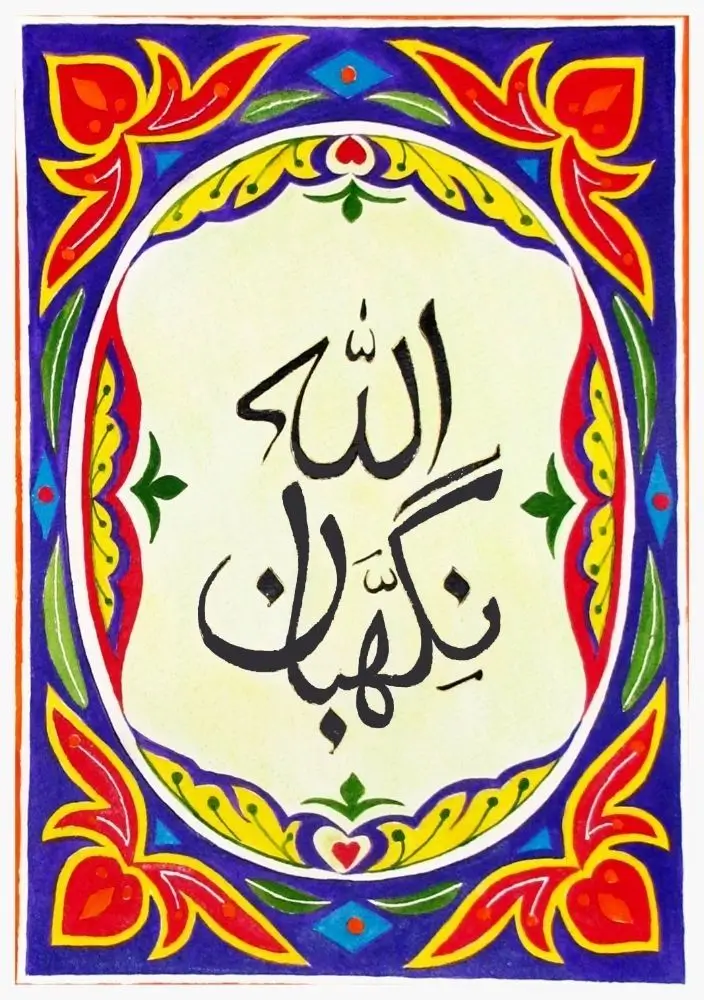 اللّٰه
نِگہّبان